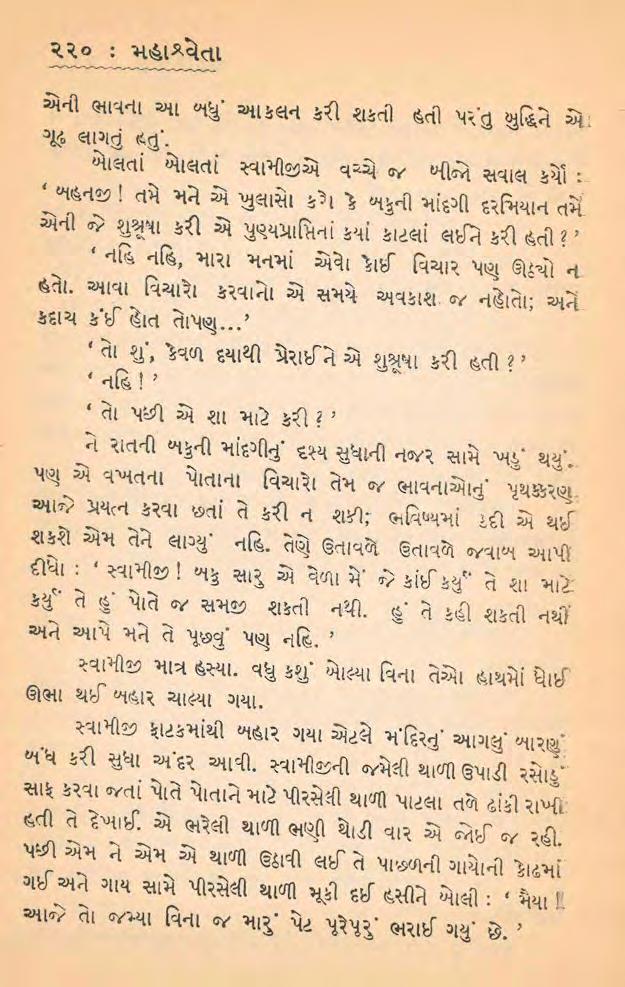 ૨૨૦ : મહાશ્વેતા
એની ભાવના આ બધું આકલન કરી શકતી હતી પરંતુ બુદ્ધિને એ
ગૂઢ લાગતું હતું.
બોલતાં બોલતાં સ્વામીજીએ વચ્ચે જ બીજો સવાલ કર્યો :
‘ બહનજી ! તમે મને એ ખુલાસો કરો કે બકુની માંદગી દરમિયાન તમે
એની જે શુશ્રૂષા કરી એ પુણ્યપ્રાપ્તિનાં કયાં કાટલાં લઈને કરી હતી ? ’
‘ નહિ નહિ, મારા મનમાં એવો કોઈ વિચાર પણ ઊઠ્યો ન
હતો. આવા વિચારો કરવાનો એ સમયે અવકાશ જ નહોતો; અને
કદાચ કંઈ હોત તોપણ...’
‘ તો શું, કેવળ દયાથી પ્રેરાઈને એ શુશ્રૂષા કરી હતી ? ’
‘ નહિ ! ’
‘ તો પછી એ શા માટે કરી ? ’
ને રાતની બકુની માંદગીનું દૃશ્ય સુધાની નજર સામે ખડું થયું.
પણ એ વખતના પોતાના વિચારો તેમ જ ભાવનાઓનું પૃથક્કરણ
આજે પ્રયત્ન કરવા છતાં તે કરી ન શકી; ભવિષ્યમાં કદી એ થઈ
શકશે એમ તેને લાગ્યું નહિ. તેણે ઉતાવળે ઉતાવળે જવાબ આપી
દીધો : ‘ સ્વામીજી ! બકુ સારુ એ વેળા મેં જે કાંઈ કર્યું તે શા માટે
કર્યું તે હું પોતે જ સમજી શકતી નથી. હું તે કહી શકતી નથી
અને આપે મને તે પૂછવું પણ નહિ. ’
સ્વામીજી માત્ર હસ્યા. વધુ કશું બોલ્યા વિના તેઓ હાથમોં ધોઈ
ઊભા થઈ બહાર ચાલ્યા ગયા.
સ્વામીજી ફાટકમાંથી બહાર ગયા એટલે મંદિરનું આગલું બારણું
બંધ કરી સુધા અંદર આવી. સ્વામીજીની જમેલી થાળી ઉપાડી રસોડું
સાફ કરવા જતાં પોતે પોતાને માટે પીરસેલી થાળી પાટલા તળે ઢાંકી રાખી
હતી તે દેખાઈ. એ ભરેલી થાળી ભણી થોડી વાર એ જોઈ જ રહી.
પછી એમ ને એમ એ થાળી ઉઠાવી લઈ તે પાછળની ગાયોની કોઢમાં
ગઈ અને ગાય સામે પીરસેલી થાળી મૂકી દઈ હસીને બોલી : ‘ મૈયા !
આજે તો જમ્યા વિના જ મારું પેટ પૂરેપૂરું ભરાઈ ગયું છે. ’